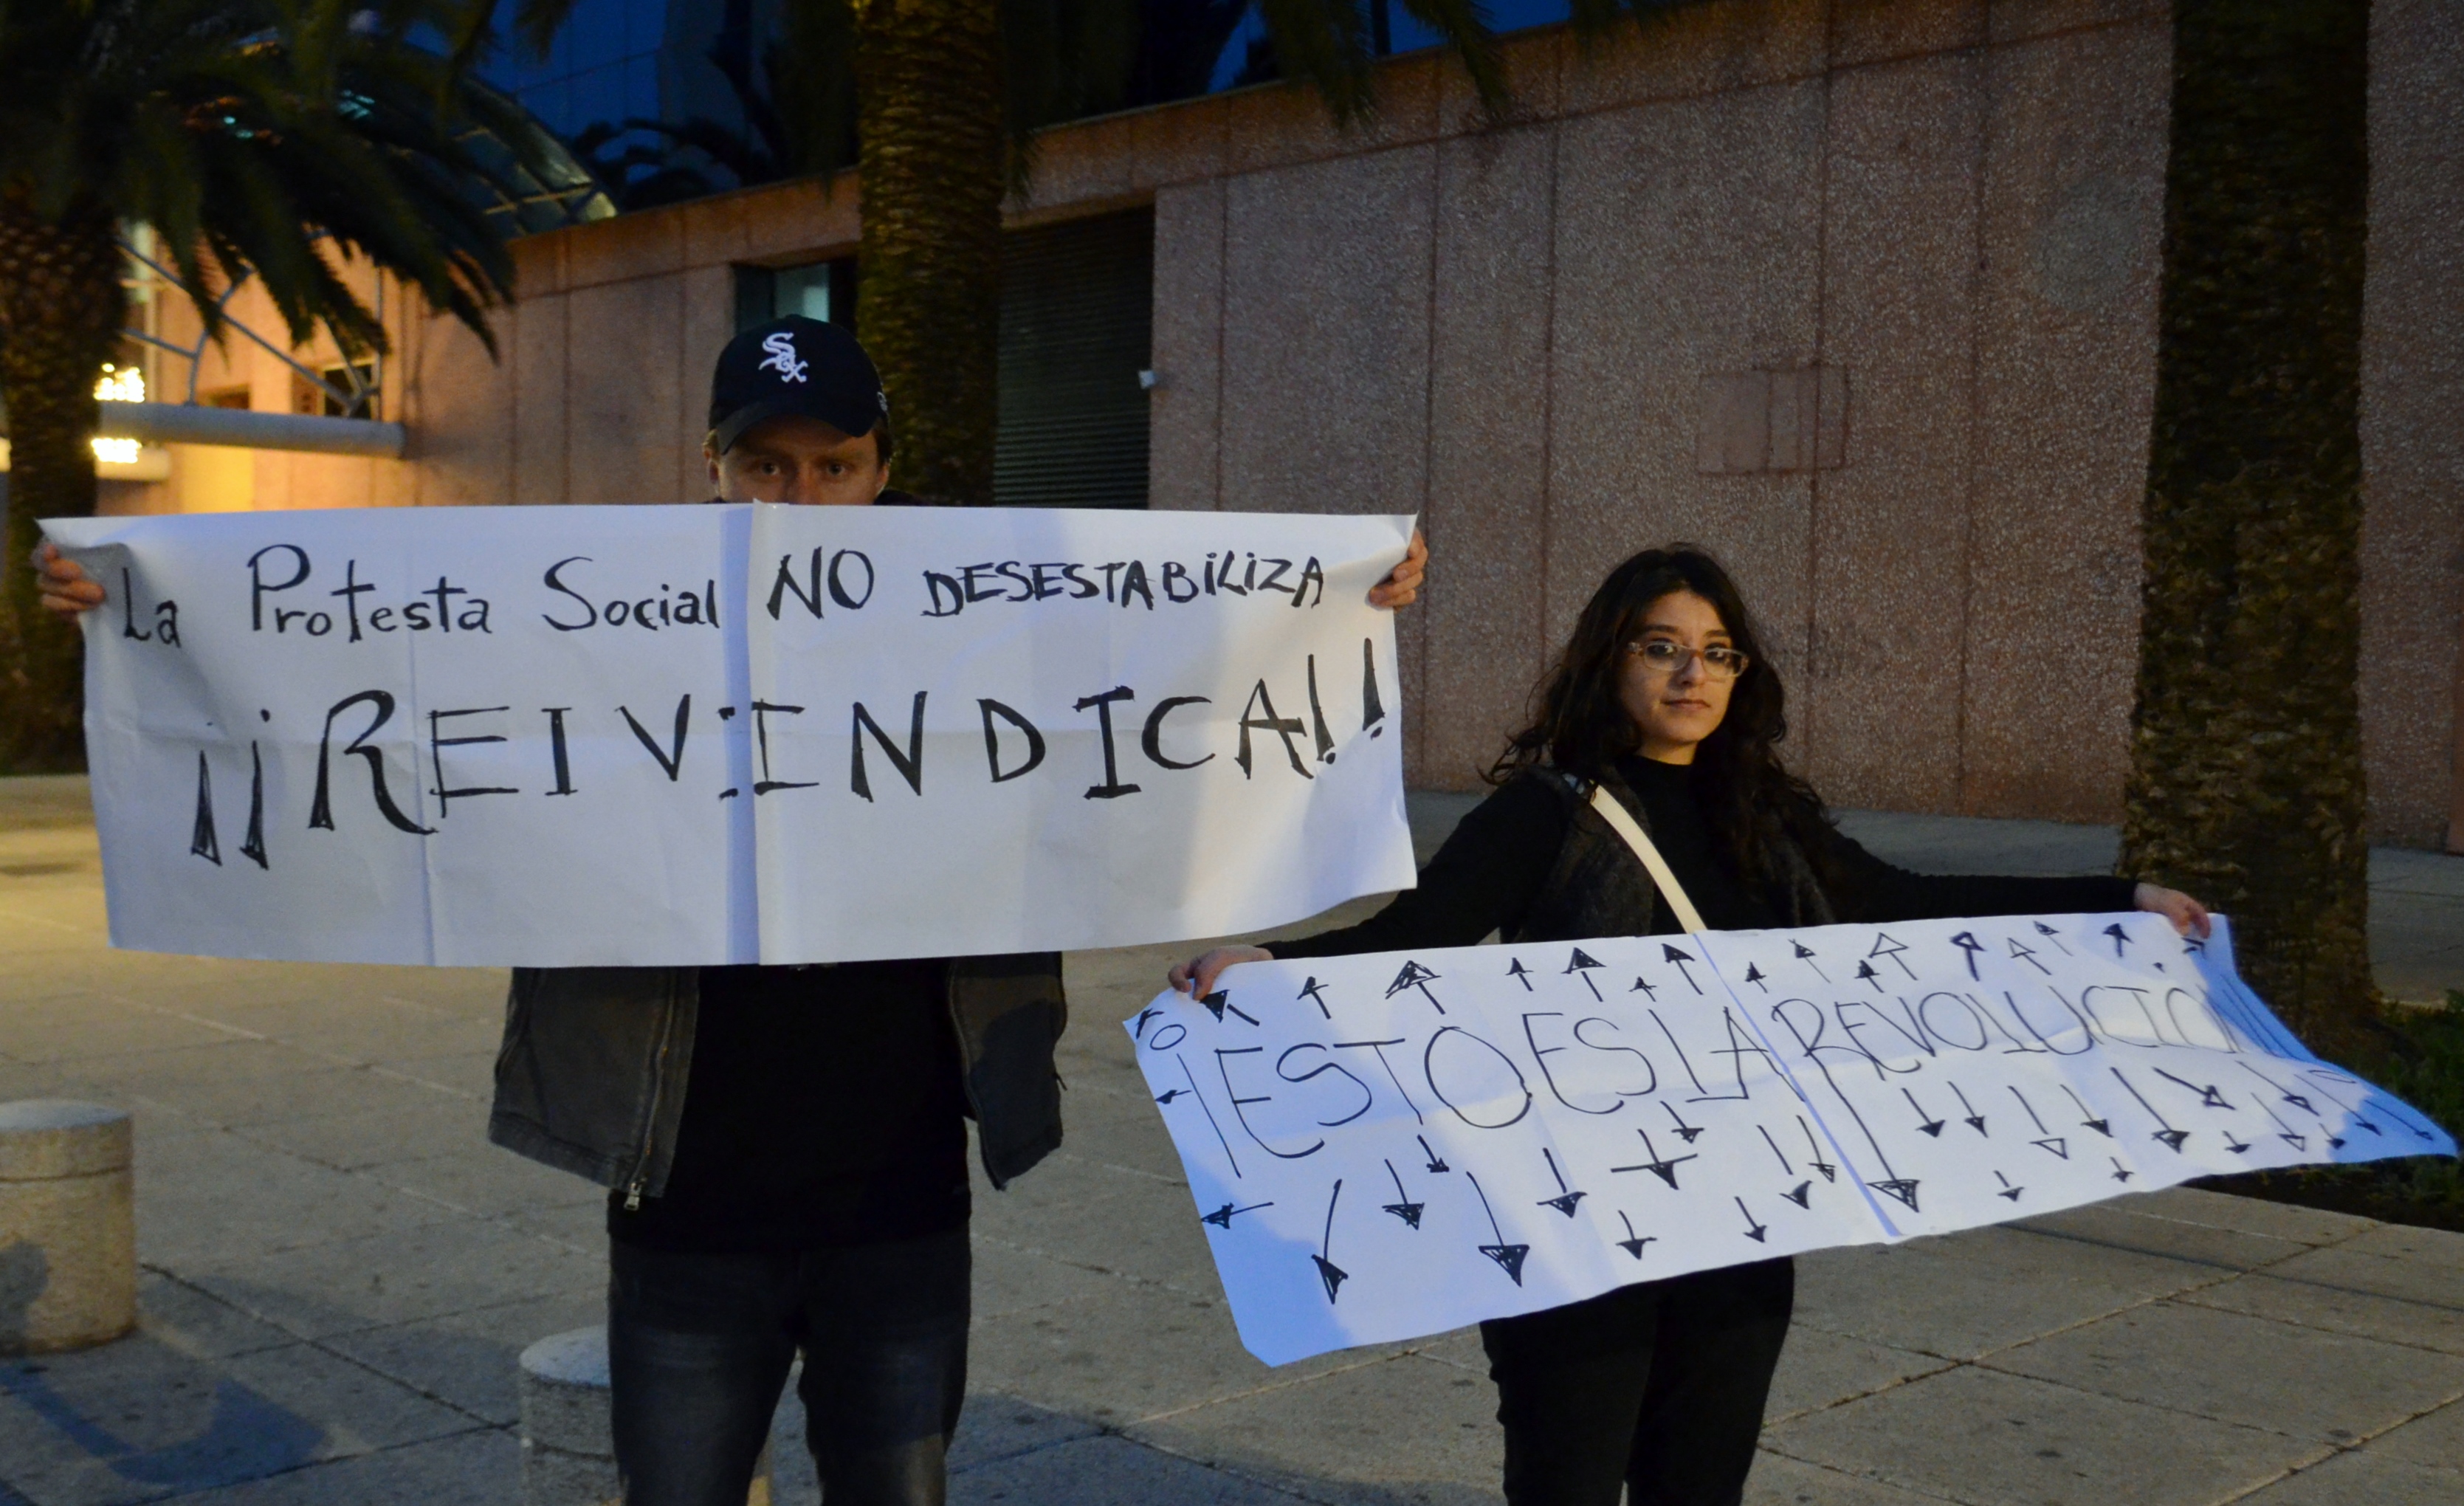 Sox
La Protesta Social NO DESESTABiLiZA
¡¡REIVINDICA!!
¡ESTO ES LA REVOLUCIÓN